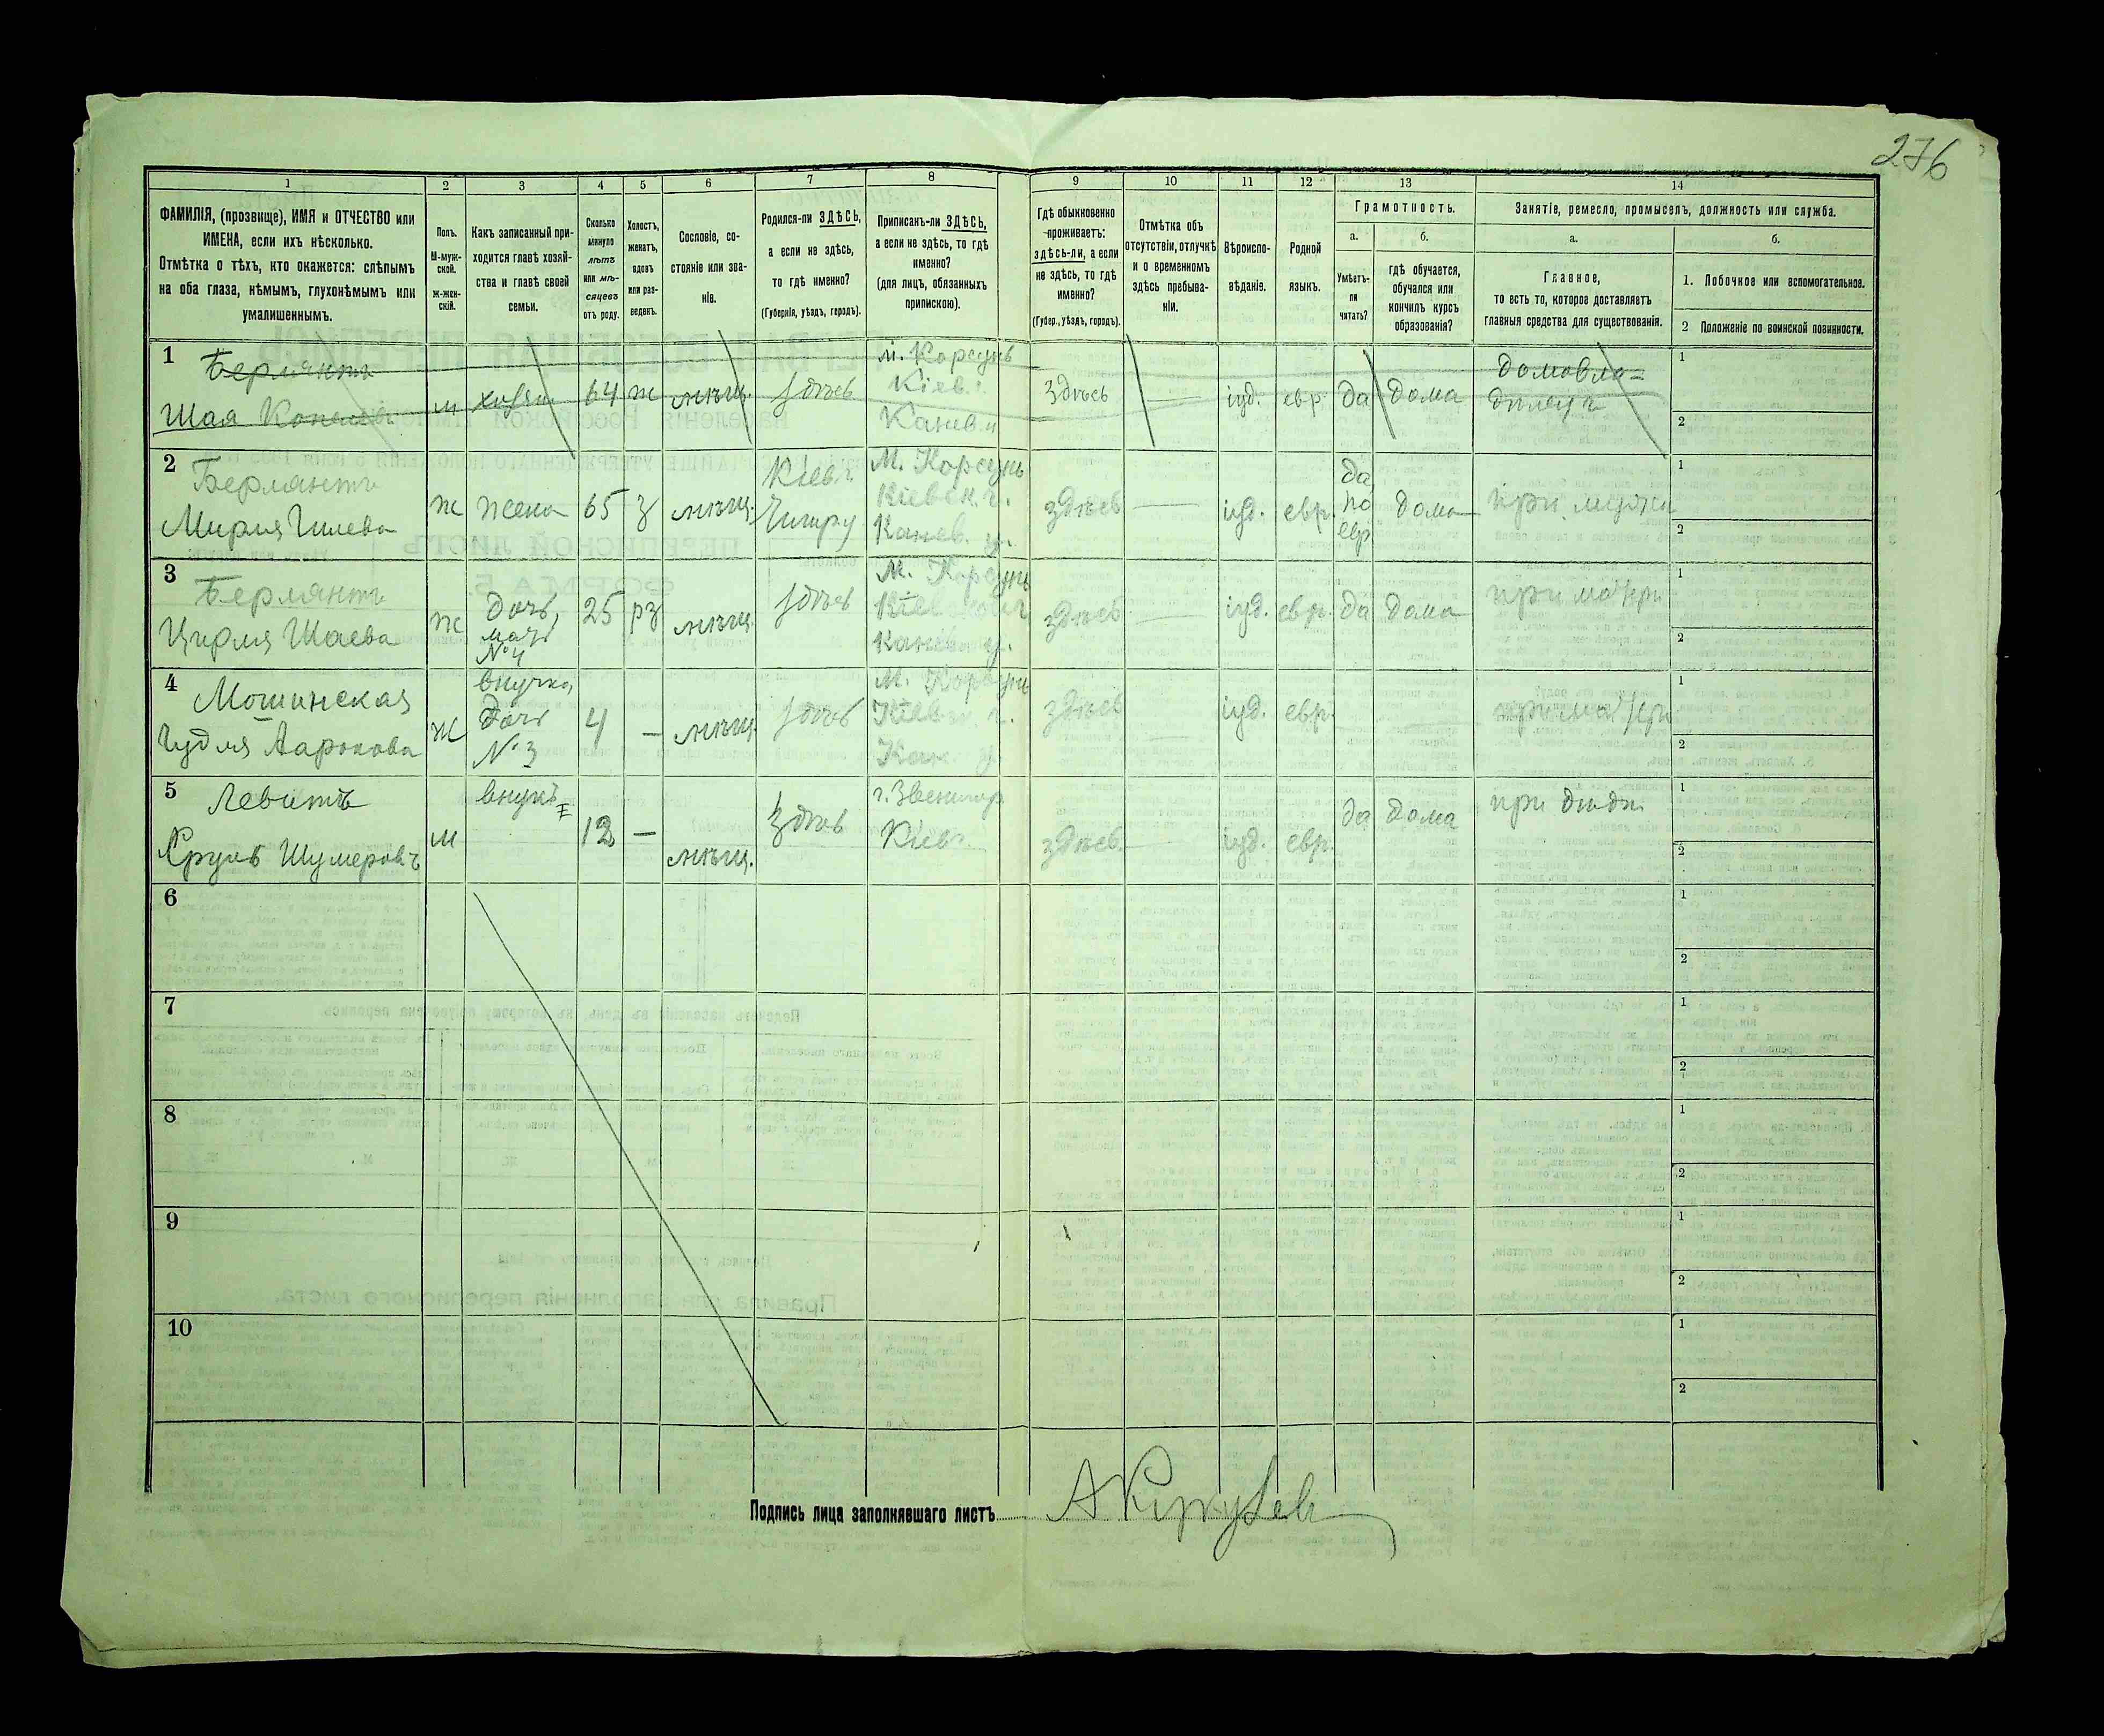 276
1
2
3
4
5
6
7
8
9
10
11
12
13
14
ФАМИЛІЯ, (прозвище), ИМЯ и ОТЧЕСТВО или
ИМЕНА, если ихъ нѣсколько.
Отмѣтка о тѣхъ, кто окажется: слѣпымъ
на оба глаза, нѣмымъ, глухонѣмымъ или
умалишеннымъ.
Полъ.
М-муж-
ской.
Ж-жен-
скій.
Какъ записанный при-
ходится главѣ хозяй-
ства и главѣ своей
семьи.
Сколько
минуло
лѣтъ
или мѣ-
сяцевъ
отъ роду.
Холостъ,
женатъ,
вдовъ
или раз-
веденъ.
Сословіе, со-
стояніе или зва-
ніе.
Родился-ли ЗДѢСЬ,
а если не здѣсь,
то гдѣ именно?
(Губернія, уѣздъ, городъ).
Приписанъ-ли ЗДѢСЬ,
а если не здѣсь, то гдѣ
именно?
(для лицъ, обязанныхъ
припискою).
Гдѣ обыкновенно
проживаетъ:
здѣсь-ли, а если
не здѣсь, то гдѣ
именно?
(Губер., уѣздъ, городъ).
Отмѣтка объ
отсутствіи, отлучкѣ
и о временномъ
здѣсь пребыва-
ніи.
Вѣроиспо-
вѣданіе.
Родной
языкъ.
Грамотность.
а.
Умѣетъ-
ли
читать?
б.
гдѣ обучается,
обучался или
кончилъ курсъ
образованія?
Занятіе, ремесло, промыселъ, должность или служба.
а.
Главное,
то есть то, которое доставляетъ
главныя средства для существованія.
б.
1. Побочное или вспомогательное.
2 Положеніе по воинской повинности.
1
Берлянтъ
Шая
м
хозяин
64
ж
мѣщ.
здѣсь
м. Корсунь
Кіев.
Канев.
здѣсь
іуд.
евр.
да
дома
домовла=
1
2
2
Берлянтъ
Мирия Гилева
ж
жена
65
з
мѣщ.
Кіев. г.
Чигир у
М. Корсунь
Кіевск. г.
Канев. у.
здѣсь
іуд.
евр.
да
по
евр
дома
при мужѣ
1
2
3
Берлянтъ
Цирля Шаева
ж
дочь,
мать
№ 4
25
рз
мѣщ.
здѣсь
М. Корсунь
Канев. у.
здѣсь
іуд.
евр.
да
дома
при матери
1
2
4
Мошинская
Гудля Ааронова
ж
внучка,
дочь
№ 3
4
—
мѣщ.
здѣсь
М. Корсунь
Кан у.
здѣсь
іуд.
евр.
при матери
1
2
5
Левитъ
Сруль Шумеровъ
м
внукъ
12
—
мѣщ.
здѣсь
г. Звенигор
Кіев.
здѣсь
іуд.
евр.
да
дома
при дядѣ
1
2
6
1
2
7
1
2
8
1
2
9
1
2
10
1
2
Подпись лица заполнявшаго листъ